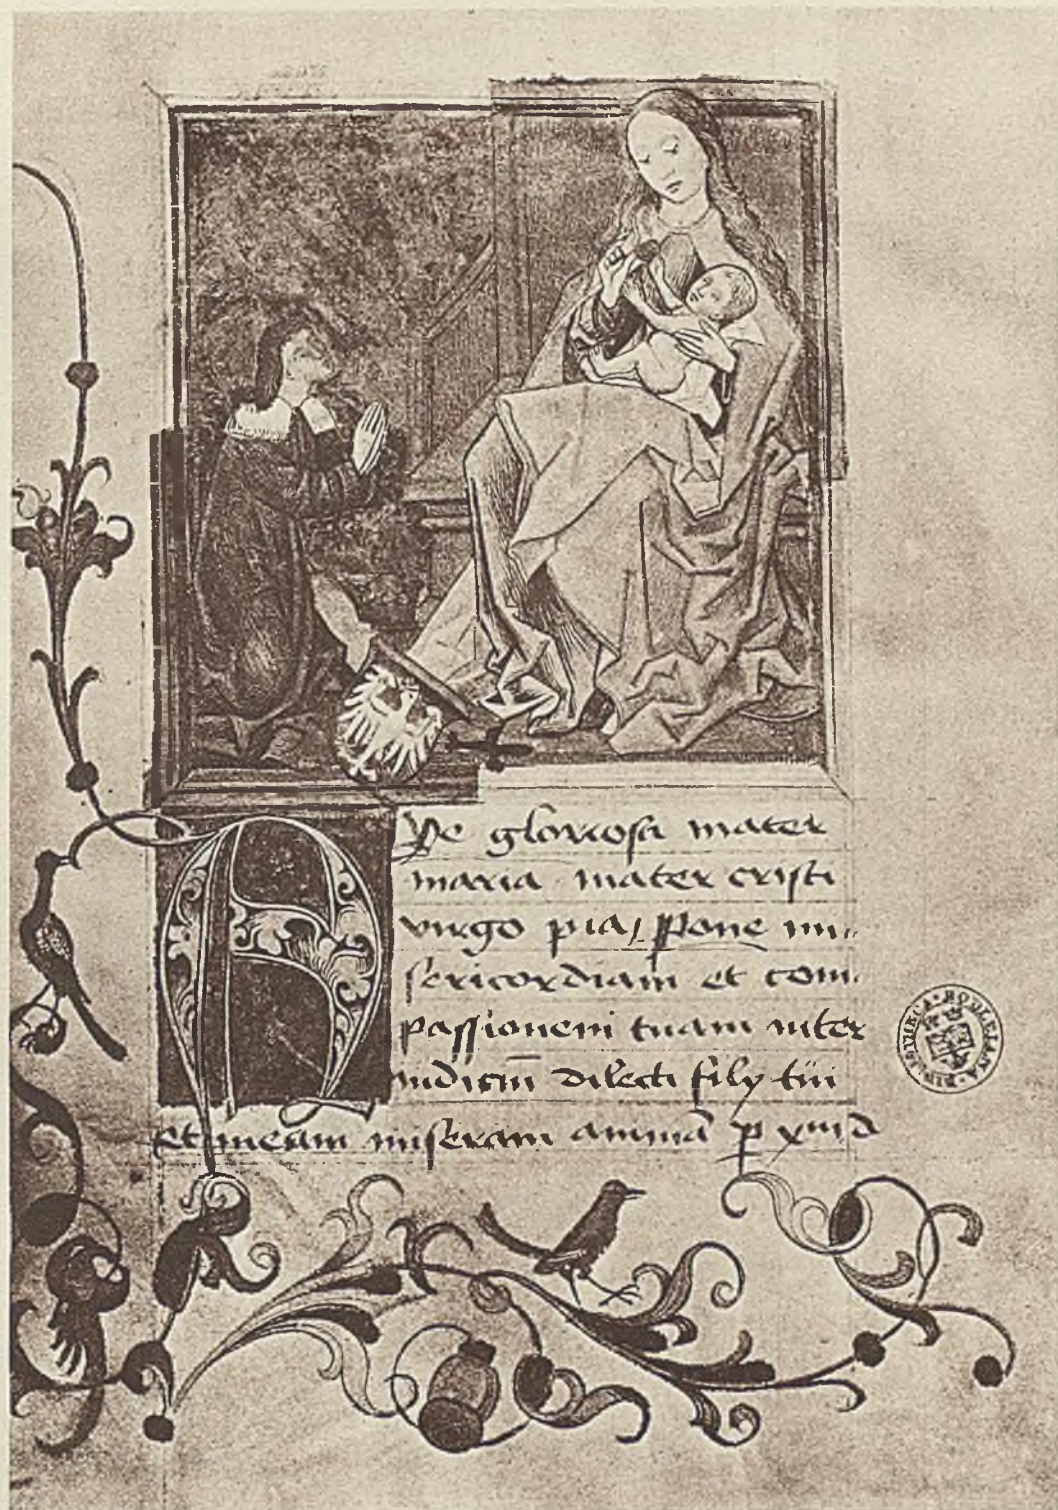 AVe gloriosa mater
maria mater cristi
virgo pia / Pone mi-
sericordiam et com-
passionem tuam inter
iudiciū dilecti filij tui
et meam miseram animā
BIBLIOTHECA · BODLEIANA